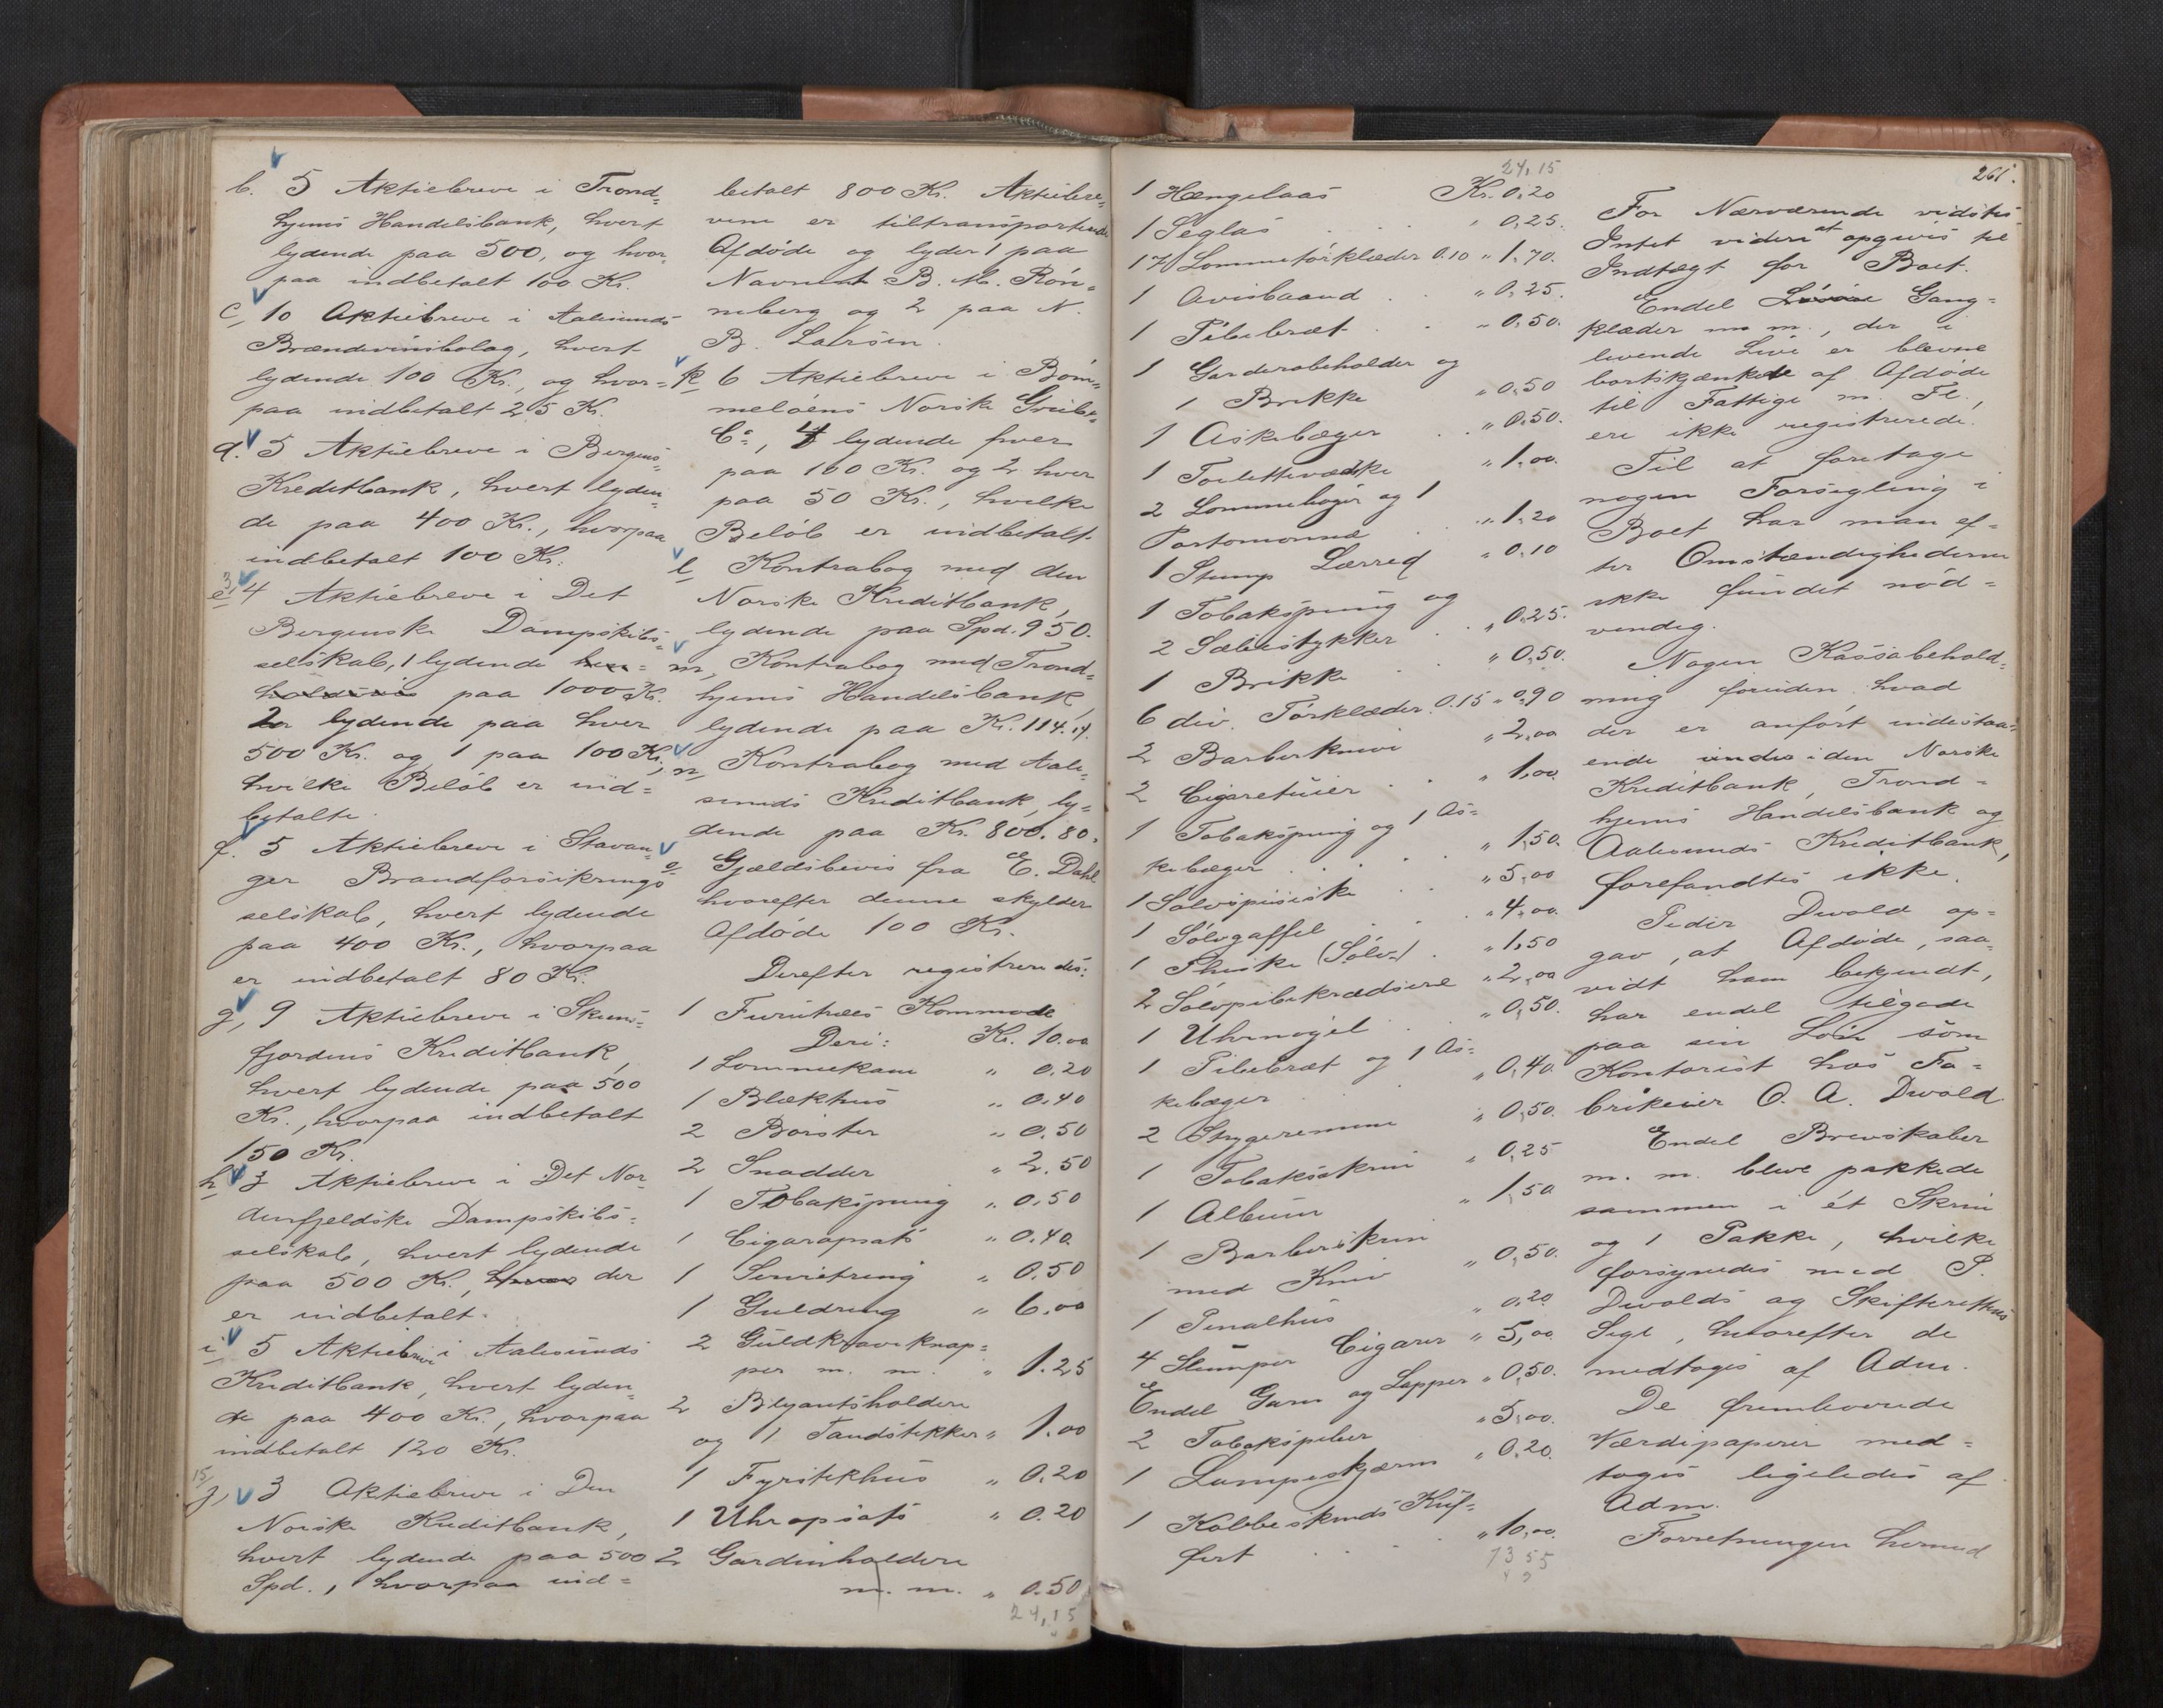 b. 5 Aktiebreve i Trond-
hjems Handelsbank, hvert
lydende paa 500, og hvor-
paa indbetalt 100 Kr.
c, 10 Aktiebreve i Aalesunds
Brændevinsbolag, hvert
lydende 100 Kr., og hvor-
paa indbetalt 25 Kr.
d. 5 Aktiebreve i Bergens
Kreditbank, hvert lyden-
de paa 400 Kr., hvorpaa
indbetalt 100 Kr.
e, 4 Aktiebreve i Det
Bergenske Dampskibs-
selskab, 1 lydende
paa 1000 Kr.
2 lydende paa hver
500 Kr. og 1 paa 100 Kr.,
hvilke Beløb er ind-
betalte.
f. 5 Aktiebreve i Stavan-
ger Brandforsikrings
selskab, hvert lydende
paa 400 Kr., hvorpaa
er indbetalt 80 Kr.
g, 9 Aktiebreve i Skiens-
fjordens Kreditbank,
hvert lydende paa 500
Kr., hvorpaa indbetalt
150 Kr.
h 3 Aktiebreve i Det Nor-
denfjeldske Dampskibs-
selskab, hvert lydende
paa 500 Kr., der
er indbetalt.
i 5 Aktiebreve i Aalesunds
Kreditbank, hvert lyden-
de paa 400 Kr., hvorpaa
indbetalt 120 Kr.
15/
j, 3 Aktiebreve i Den
Norske Kreditbank,
hvert lydende paa 500
Spd., hvorpaa ind-
betalt 800 Kr. Aktiebre-
vene er tiltransporterede
Afdøde og lyder 1 paa
Navnet B. M. Røn-
neberg og 2 paa N.
B. Larsen.
k 6 Aktiebreve i Bøm-
meløens Norske Grube
Co, 4 lydende hver
paa 100 Kr. og 2 hver
paa 50 Kr., hvilke
Beløb er indbetalt.
l Kontrabog med den
Norske Kreditbank,
lydende paa Spd. 950.
m, Kontrabog med Trond-
hjems Handelsbank,
lydende paa Kr. 114.14.
n, Kontrabog med Aale-
sunds Kreditbank, ly-
dende paa Kr. 800.80.
o. Gjældsbevis fra E. Dahl
hvorefter denne skylder
Afdøde 100 Kr.
Derefter registreredes:
1 Furutræs Kommode Kr. 10.00
Deri:
1 Lommekam " 0.20
1 Blækhus " 0.40
2 Børster " 0.50
2 Snadder " 2.50
1 Tobakspung " 0.50
1 Cigaropsats " 0.40
1 Servietring " 0.50
1 Guldring " 6.00
2 Guldkraveknap-
per m. m. " 1.25
2 Blyantsholdere
og 1 Tandstikker " 1.00
1 Fyrstikhus " 0.20
1 Uhropsats " 0.20
2 Gardinholdere
m. m. " 0.50
24,15
24,15
1 Hængelaas Kr. 0,20
1 Seglas " 0,25.
17 Lommetørklæder 0.10 " 1,70.
1 Avisbaand " 0,25.
1 Pibebræt " 0,50.
1 Garderobeholder og
1 Brikke " 0,50
1 Askebæger " 0,50.
1 Toilettevædske " 1,00.
2 Lommebøger og 1
Portomonnæ " 1,20
1 Stump Lærred " 0,10
1 Tobakspung og
2 Sæbestykker " 0,25.
1 Brikke " 0,50.
6 div. Tørklæder 0.15 " 0,90
2 Barberknive " 2,00
2 Cigaretuier " 1,00.
1 Tobakspung og 1 As-
kebæger " 1,50.
1 Sølvspiseske " 5,00
1 Sølvgaffel " 4,00.
1 Theske (Sølv) " 1,50
2 Sølvpibekradsere " 2,00
1 Uhrnøgel " 0,50.
1 Pibebræt og 1 As-
kebæger " 0,40
2 Strygeremme " 0,50.
1 Tobakskrin " 0,25
1 Album " 1,50
1 Barberskrin
med Kniv " 0,50.
1 Penalhus " 0,20.
4 Stumper Cigarer " 5,00.
Endel Garn og Lapper " 0,50.
2 Tobakspiber " 5,00.
1 Lampeskjærm " 0,20.
1 Kobbeskinds Kuf-
fert " 10,00.
73 55
261.
For Nærværende vidstes
Intet videre at opgives til
Indtægt for Boet.
Endel Gang-
klæder m. m., der i
levende Live er blevne
bortskjænkede af Afdøde
til Fattige m. Fl.,
ere ikke registrerede.
Til at foretage
nogen Forsegling i
Boet har man ef-
ter Omstændighederne
ikke fundet nød-
vendig.
Nogen Kassabehold-
ning foruden hvad
der er anført indestaa-
ende i den Norske
Kreditbank, Trond-
hjems Handelsbank og
Aalesunds Kreditbank,
forefandtes ikke.
Peder Devold op-
gav, at Afdøde, saa-
vidt ham bekjendt,
har endel tilgode
paa sin Løn som
Kontorist hos Fa-
brikeier O. A. Devold.
Endel Brevskaber
m. m. bleve pakkede
sammen i ét Skrin
og 1 Pakke, hvilke
forsynedes med P.
Devolds og Skifterettens
Segl, hvorefter de
medtoges af Adm.
De fremkomne
Værdipapirer med-
toges ligeledes af
Adm.
Forretningen hermed